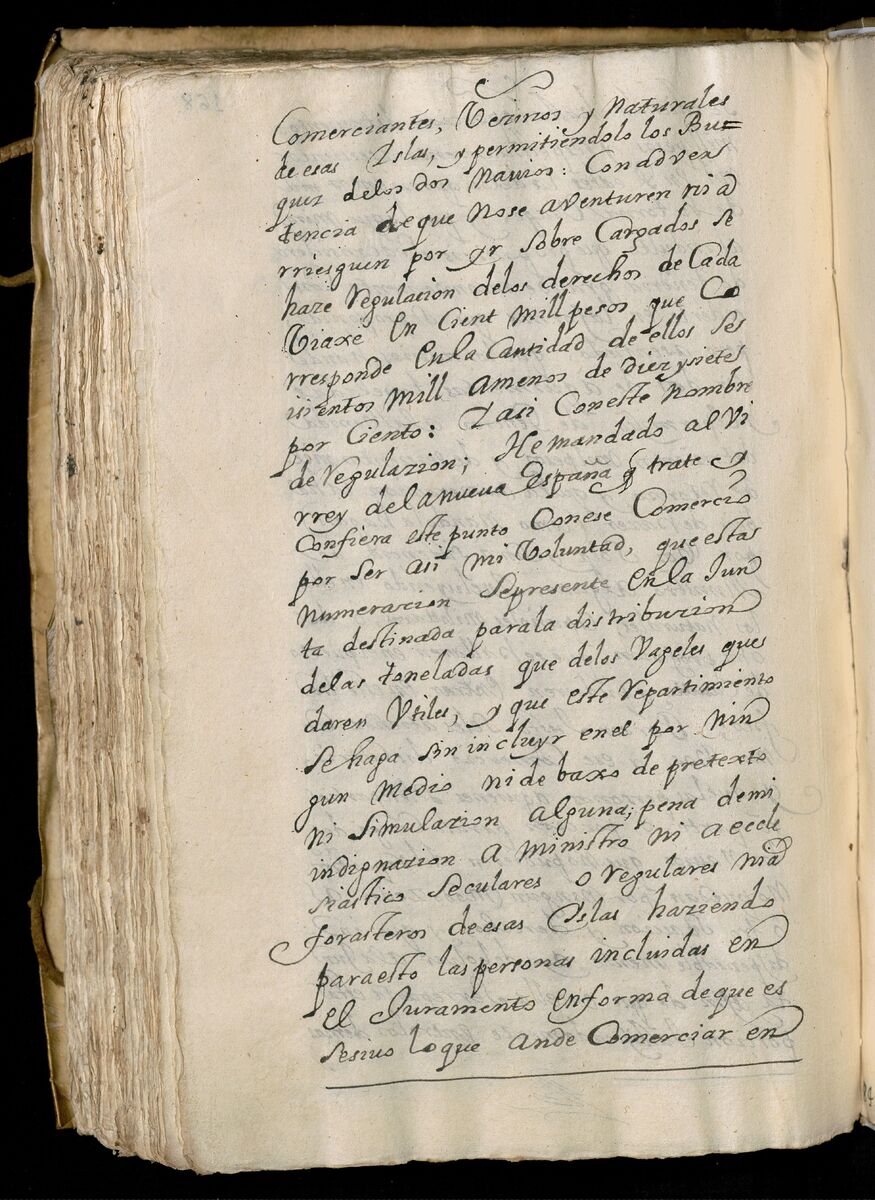 Comerciantes, Vezinos y Naturales
de esas Yslas, y permitiendolo los Bu=
quez delos dos Navios: Con adver
tencia de que Nose aventuren ni a
rriesguen por yr sobre Cargados se
haze Regulacion delos derechos de Cada
Viaxe En Cient Mill pesos que Co
rresponde En la Cantidad de ellos Ses
isientos Mill amenos de diez y siete
por Ciento: Y asi Con este Nombre
de Regulazion; He mandado al Vi
rrey dela nueva España q trate y
Confiera este punto Con ese Comercio
por ser asi mi Voluntad, que estas
Numerazion Sepresente En la Jun
ta destinada para la distribuzion
delas toneladas que delos Vageles ques
daren Utiles, y que este Repartimiento
se haga sin incluyr en el por Nin
gun Medio ni de baxo de pretexto
Ni simulazion alguna; pena demi
indignazion A Ministro Ni a eccle
siastico Seculares o Regulares Ni a
forasteros de esas Yslas haziendo
para esto las personas incluidas en
el Juramento En forma de que es
sesiuo lo que an de Comerciar en